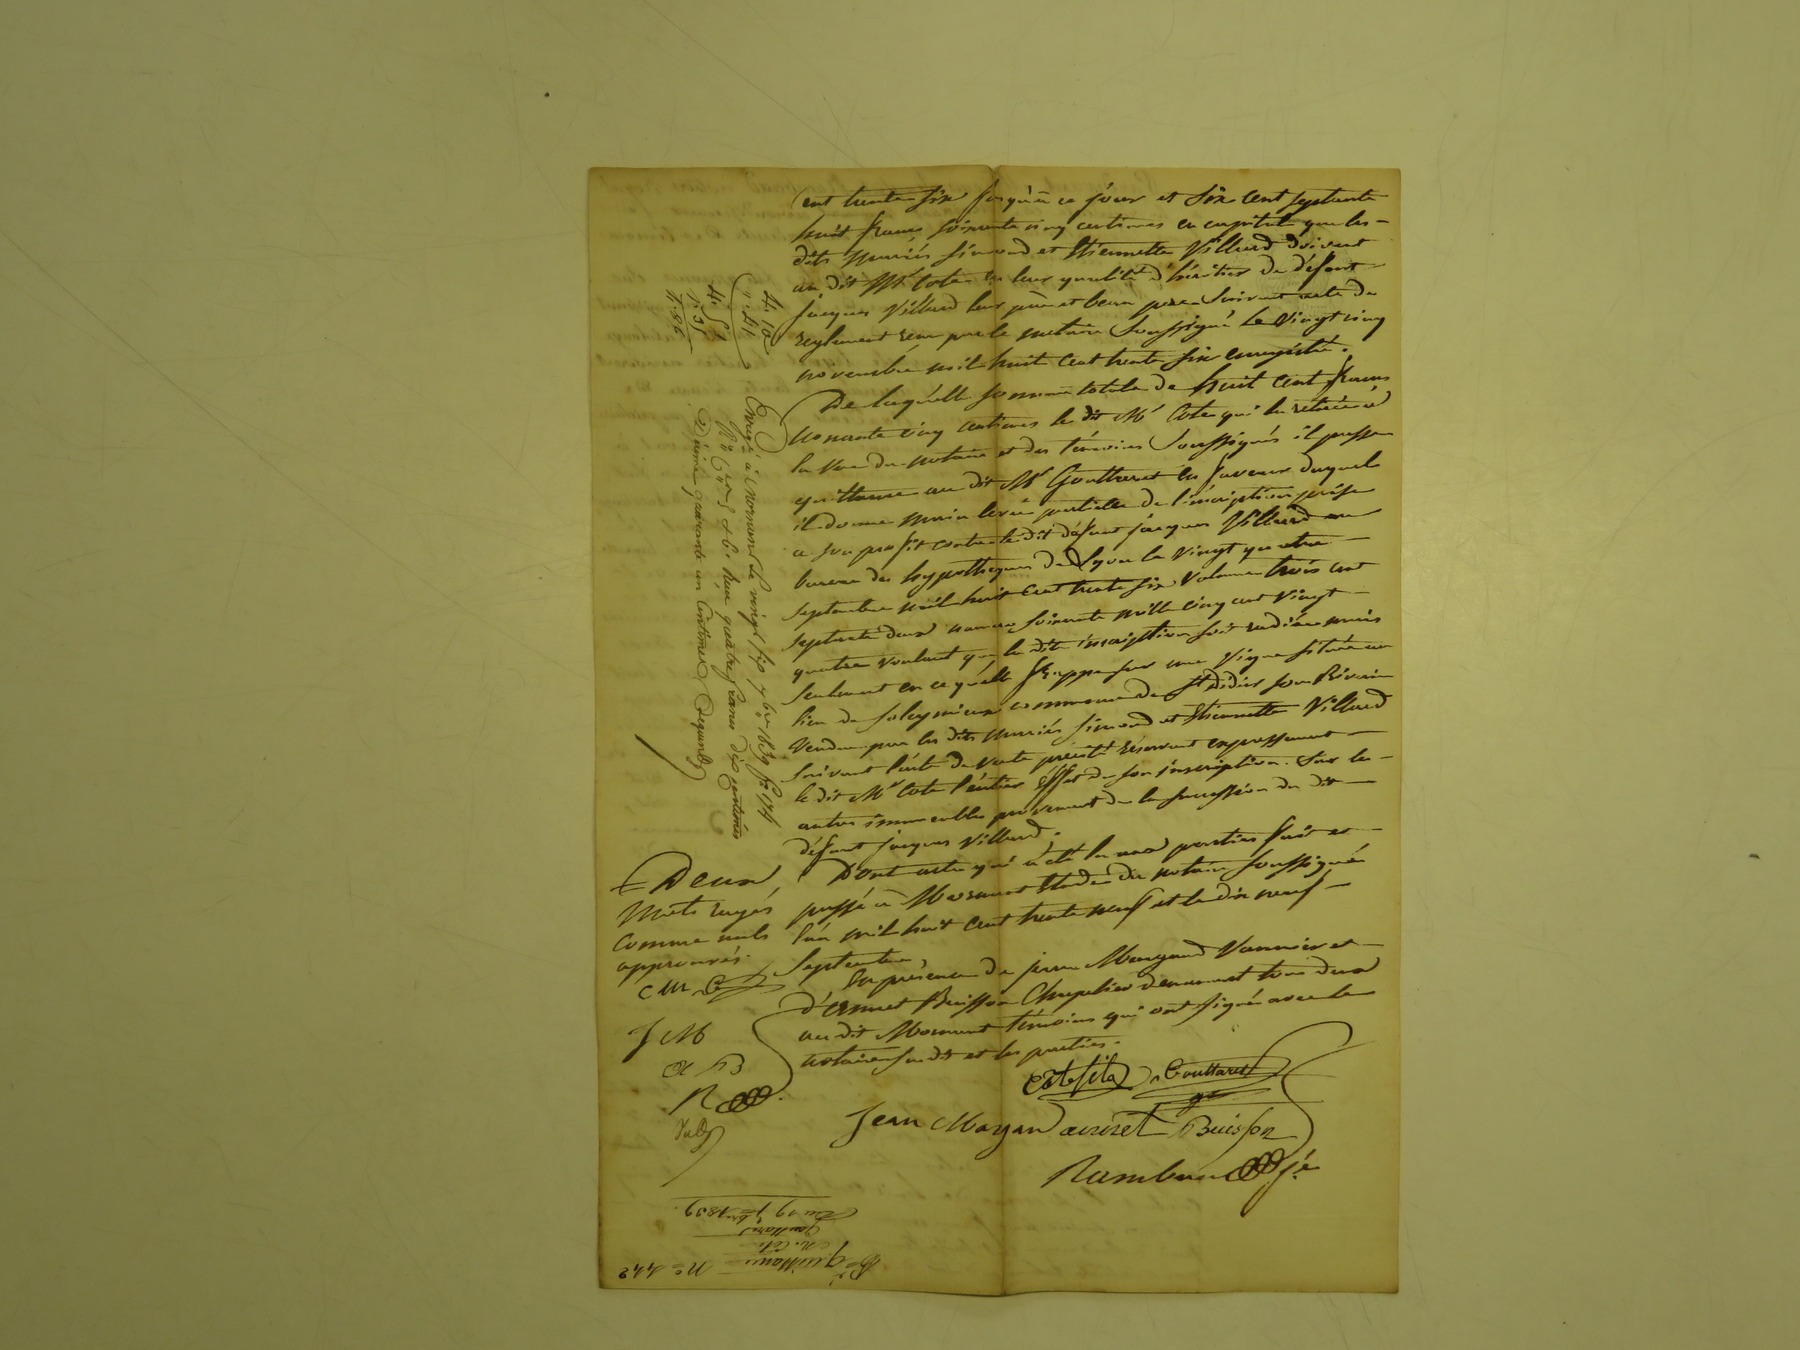 cent trente six jusqu'à ce jour et six cent septante
huit francs soixante cinq centimes en capital que les
dits mariés Simond et Etiennette Villard doivent
au dit Mr Cote en leur qualité d'héritiers de défunt
jacques Villard leur père et beau père suivant acte de
règlement reçu par le notaire soussigné le vingt cinq
novembre mil huit cent trente six enregistré.
De laquelle somme totale de huit cent francs
nonante cinq centimes le dit Mr Cote qui l'a retirée à
la vue du notaire et des témoins soussignés il passe
quittance au dit Mr Gouttaret en faveur duquel
il donne main levée partielle de l'inscription prise
à son profit contre le dit défunt jacques Villard au
bureau des hypothèques de Lyon le vingt quatre
septembre mil huit cent trente six volume trois cent
septante deux numéro soixante mille cinq cent vingt
quatre voulant que la dite inscription soit radiée mais
seulement en ce qu'elle frappe sur une vigne située au
lieu de Soleymieux commune de St Didier sous Riverie
vendue par les dits mariés Simond et Etiennette Villard
suivant l'acte de vente précité réservant expressement
le dit Mr Cote l'entier effet de son inscription sur les
autres immeubles provenant de la succession du dit
défunt jacques Villard.
Dont acte qui a été lu aux parties fait et
passé à Mornant Etude du notaire soussigné
l'an mil huit cent trente neuf et le dix neuf
septembre
En présence de jean Mazand Vannier et
d'Ennet Buisson Chapelier demeurant tous deux
au dit Mornant témoins qui ont signé avec le
notaire susdit et les parties.
Cote fils Gouttaret
Jean Mazan Buisson
Rambau
4. 10
" 41
4. 51
Enregé à Mornant le vingt six 7bre 1839 fo 174
Ro Cses 5 & 6. Reçu quatre francs dix centimes
Dixième quarante un centimes
Deux
mots rayés
comme nuls
approuvés.
C
J M
B
R
No 442
quittance
M. Cote
Gouttaret
Du 19 7bre 1839